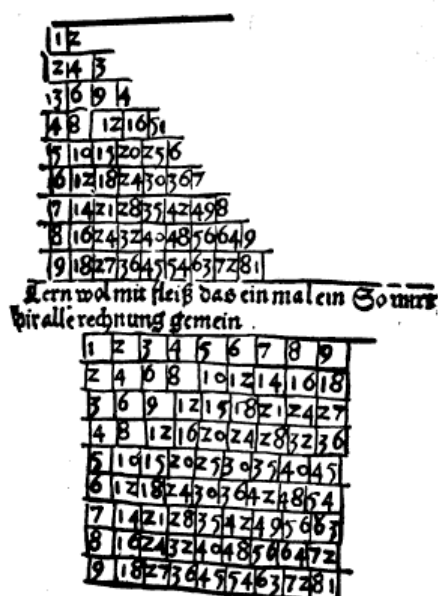 1 2
2 4 3
3 6 9 4
4 8 12 16 5
5 10 15 20 25 6
6 12 18 24 30 36 7
7 14 21 28 35 42 49 8
8 16 24 32 40 48 56 64 9
9 18 27 36 45 54 63 72 81
Lern wol mit fleiß das ein mal ein So wirt
dir alle rechnung gemein.
1 2 3 4 5 6 7 8 9
2 4 6 8 10 12 14 16 18
3 6 9 12 15 18 21 24 27
4 8 12 16 20 24 28 32 36
5 10 15 20 25 30 35 40 45
6 12 18 24 30 36 42 48 54
7 14 21 28 35 42 49 56 63
8 16 24 32 40 48 56 64 72
9 18 27 36 45 54 63 72 81